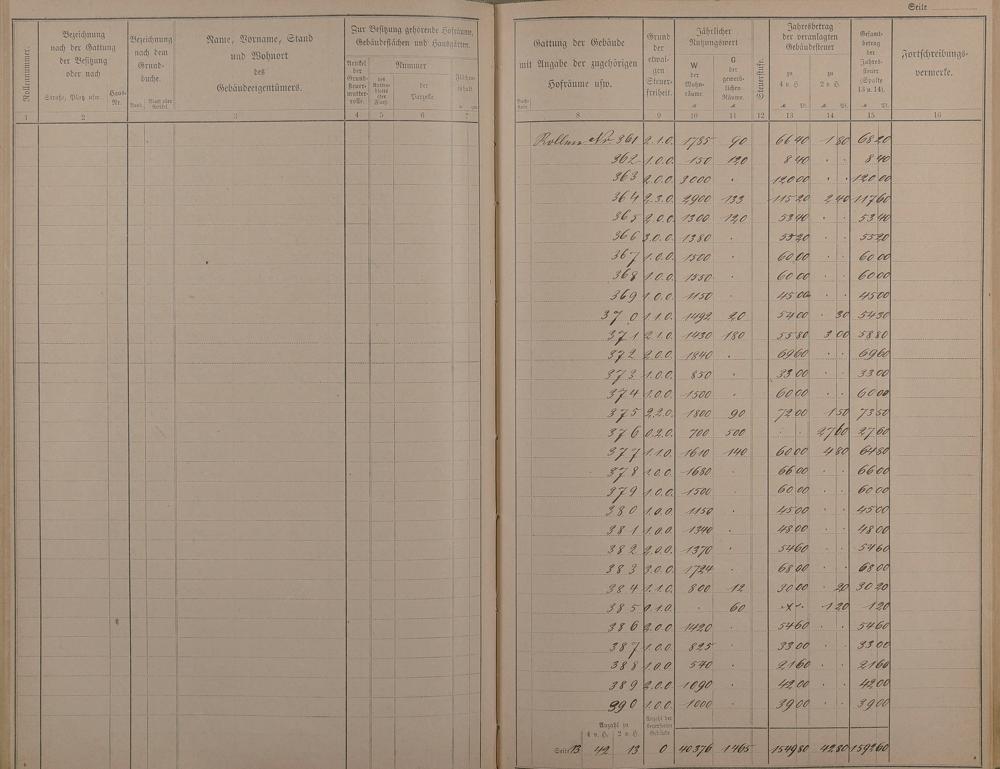 Seite
Rollennummer.
Bezeichnung
nach der Gattung
der Besitzung
oder nach
Straße, Platz usw.
Haus-
Nr.
Bezeichnung
nach dem
Grund-
buche.
Band.
Blatt oder
Artikel
Name, Vorname, Stand
und Wohnort
des
Gebäudeeigentümers.
Zur Besitzung gehörende Hofräume,
Gebäudeflächen und Hausgärten.
Artikel
der
Grund-
steuer-
mutter-
rolle.
Nummer
des
Karten-
blattes
der
Flur
der
Parzelle.
Flächen-
inhalt
1 2 3 4 5 6 7
Gattung der Gebäude
mit Angabe der zugehörigen
Hofräume usw.
Buch-
stabe
Grund
der
etwai-
gen
Steuer-
freiheit.
Jährlicher
Nutzungswert
W
der
Wohn-
räume.
G
der
gewerb-
lichen
Räume.
Steuerstufe.
Jahresbetrag
der veranlagten
Gebäudesteuer
zu
4 v H.
zu
2 v H.
Gesamt-
betrag
der
Jahres-
steuer
(Spalte
13 u. 14).
Fortschreibungs-
vermerke.
8 9 10 11 12 13 14 15 16
Rollen Nr 361 2.1.0. 1785 90 66 40 1 80 68 20
362 1.0.0. 150 120 8 40 · · 8 40
363 2.0.0. 3000 · 120 00 · · 120 00
364 2.3.0. 2900 133 115 20 2 40 117 60
365 2.0.0. 1300 120 53 40 · · 53 40
366 3.0.0. 1380 · 55 20 · · 55 20
367 1.0.0. 1500 · 60 00 · · 60 00
368 1.0.0. 1550 · 60 00 · · 60 00
369 1.0.0. 1150 · 45 00 · · 45 00
370 1.1.0. 1492 20 54 00 · 30 54 30
371 2.1.0. 1430 180 55 80 3 00 58 80
372 2.0.0. 1840 · 69 60 · · 69 60
373 1.0.0. 850 · 33 00 · · 33 00
374 1.0.0. 1500 · 60 00 · · 60 00
375 2.2.0. 1800 90 72 00 1 50 73 50
376 0.2.0. 700 500 · · 27 60 27 60
377 1.1.0. 1610 140 60 00 4 80 64 80
378 1.0.0. 1680 · 66 00 · · 66 00
379 1.0.0. 1500 · 60 00 · · 60 00
380 1.0.0. 1150 · 45 00 · · 45 00
381 1.0.0. 1340 · 48 00 · · 48 00
382 2.0.0. 1370 · 54 60 · · 54 60
383 3.0.0. 1724 · 68 00 · · 68 00
384 1.1.0. 800 12 30 00 · 20 30 20
385 0.1.0. · 60 · x · 1 20 1 20
386 2.0.0. 1420 · 54 60 · · 54 60
387 1.0.0. 825 · 33 00 · · 33 00
388 1.0.0. 540 · 21 60 · · 21 60
389 2.0.0. 1090 · 42 00 · · 42 00
390 1.0.0. 1000 · 39 00 · · 39 00
Anzahl zu
4 v. H. 2 v H.
Anzahl der
steuerfreien
Gebäude
Seite 13 42 13 0 40376 1465 1549 80 42 80 1592 60